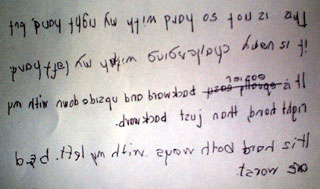 This is not so hard with my right hand, but
it is very challenging with my left hand.
It is easier backward and upside down with my
right hand than just backward.
It is hard both ways with my left. p & q
are worst.